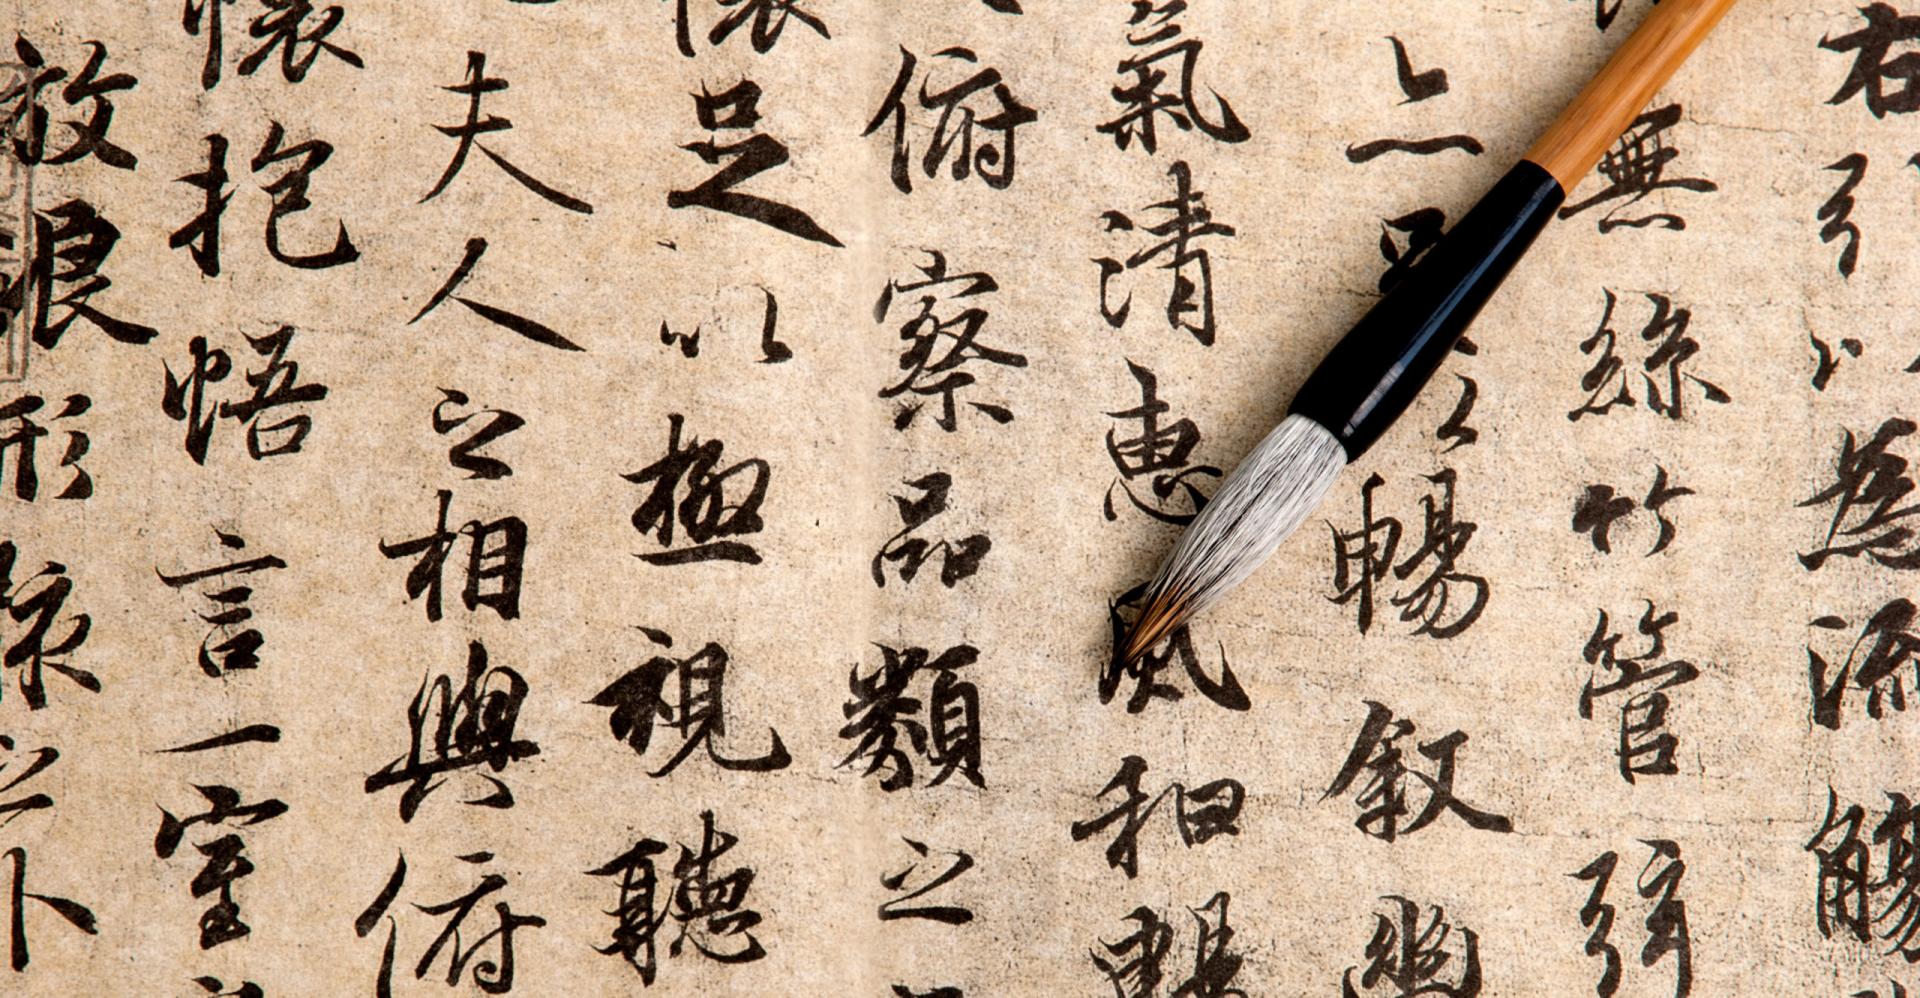 右引以為流觴
無絲竹管弦
亦足以暢叙幽
氣清惠風和暢
俯察品類之
懷足以極視聽
夫人之相與俯
懷抱悟言一室
放浪形骸之